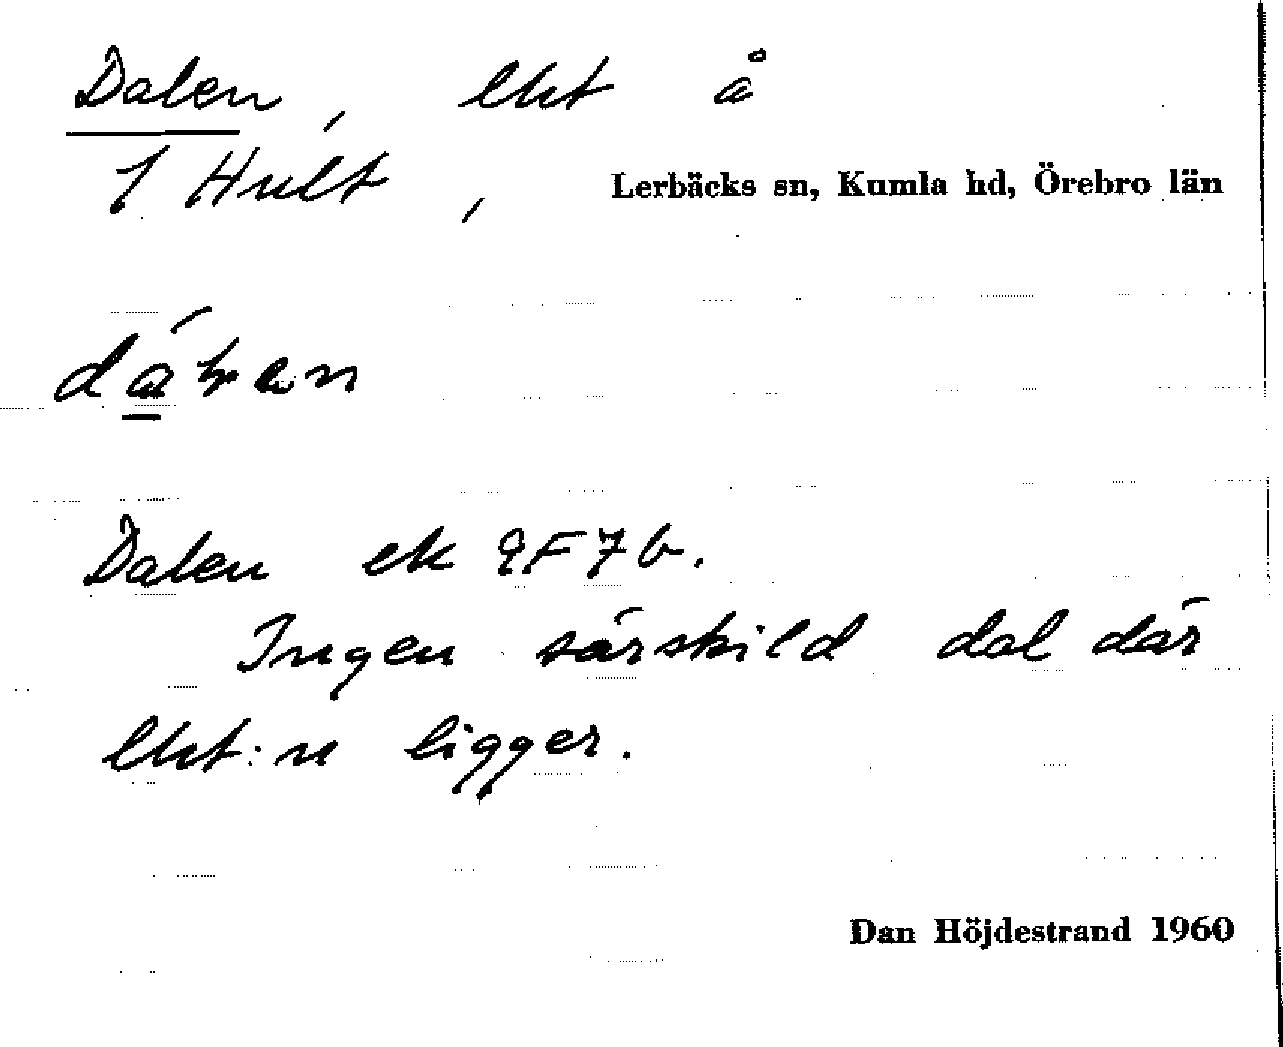 Dalen, lht å
1 Hult, Lerbäcks sn, Kumla hd, Örebro län
Dalen ek 9F7b.
Ingen särskild dal där
lht:n ligger.
Dan Höjdestrand 1960